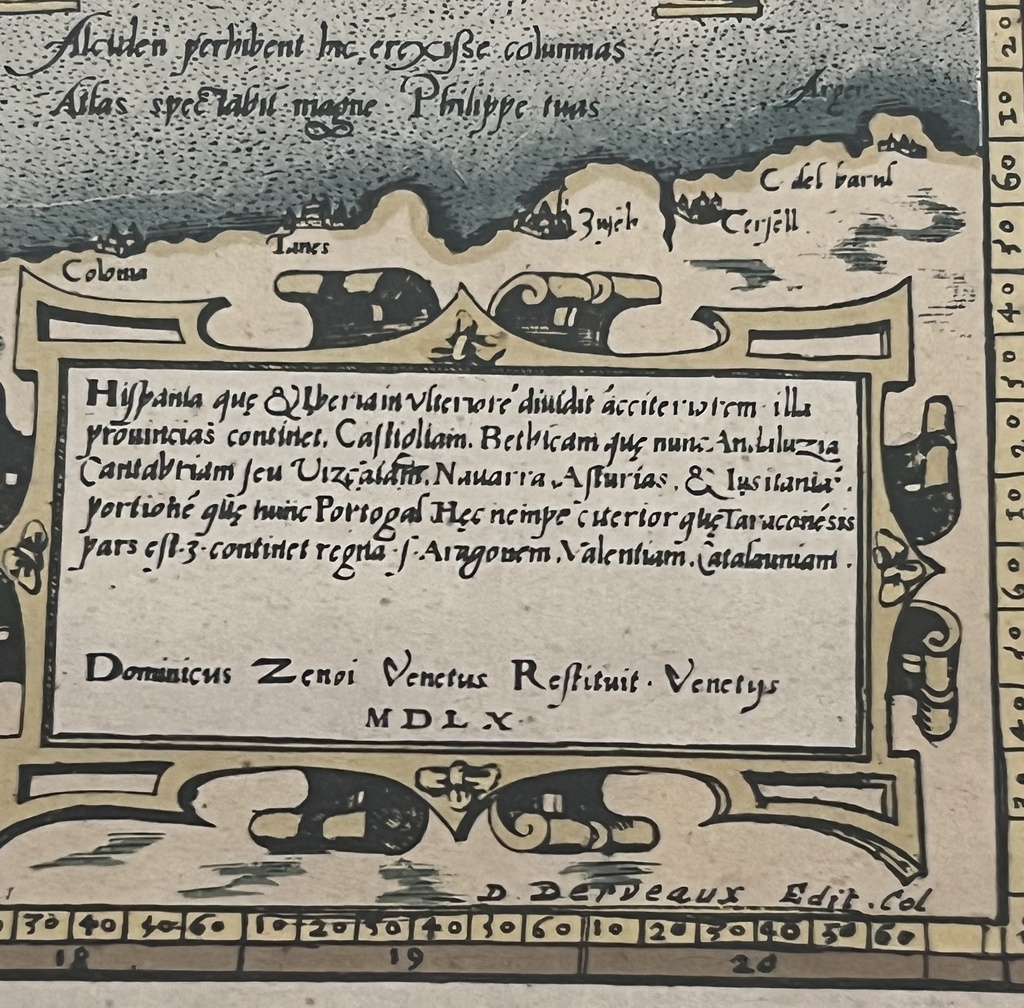 Alciden perhibent hic erexisse columnas
Atlas spectabit magne Philippe tuas
Arger
C del barul
Zujeh
Cersell.
Tanes
Coloma
Hispania quę & Iberia in vlterioré diuidit ác citeriorem illa
prouincias continet. Castigliam. Bethicam quę nunc Andaluzia
Cantabriam seu Uizcaiam. Nauarra. Asturias. & lusitaniá.
portioné quę nunc Portogal Hęc nempe citerior quę Taraconésis
pars est. 3. continet regna. s. Aragonem. Valentiam. Catalauniam.
Dominicus Zenoi Venetus Restituit. Venetys
MDLX.
D. Derveaux Edit. Col
20
10
60
50
40
30
60
50
40
30 40 50 60 10 20 30 40 50 60 10 20 30 40 50 60
18 19 20